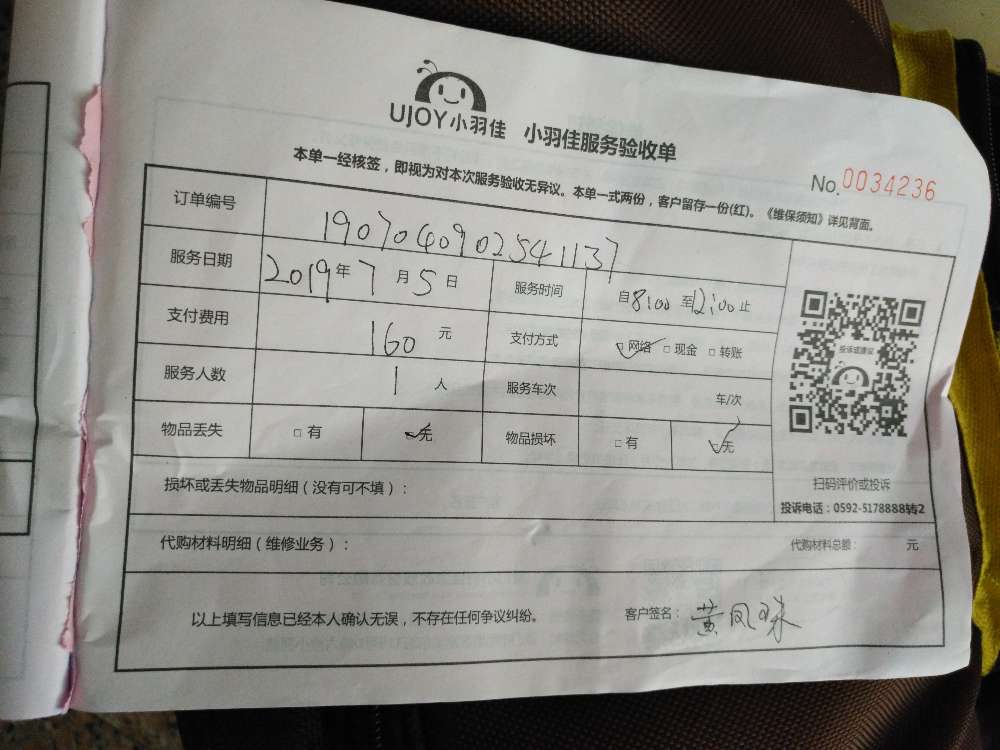 UJOY小羽佳 小羽佳服务验收单
No.0034236
本单一经核签，即视为对本次服务验收无异议。本单一式两份，客户留存一份(红)。《维保须知》详见背面。
订单编号 1907040902541137
服务日期 2019年7月5日 服务时间 自8:00至12:00止
支付费用 160元 支付方式 ☑网络 □现金 □转账
服务人数 1人 服务车次 车/次
物品丢失 □有 ☑无 物品损坏 □有 ☑无
投诉或建议
扫码评价或投诉
投诉电话：0592-5178888转2
损坏或丢失物品明细（没有可不填）：
代购材料明细（维修业务）： 代购材料总额： 元
以上填写信息已经本人确认无误，不存在任何争议纠纷。 客户签名：黄凤